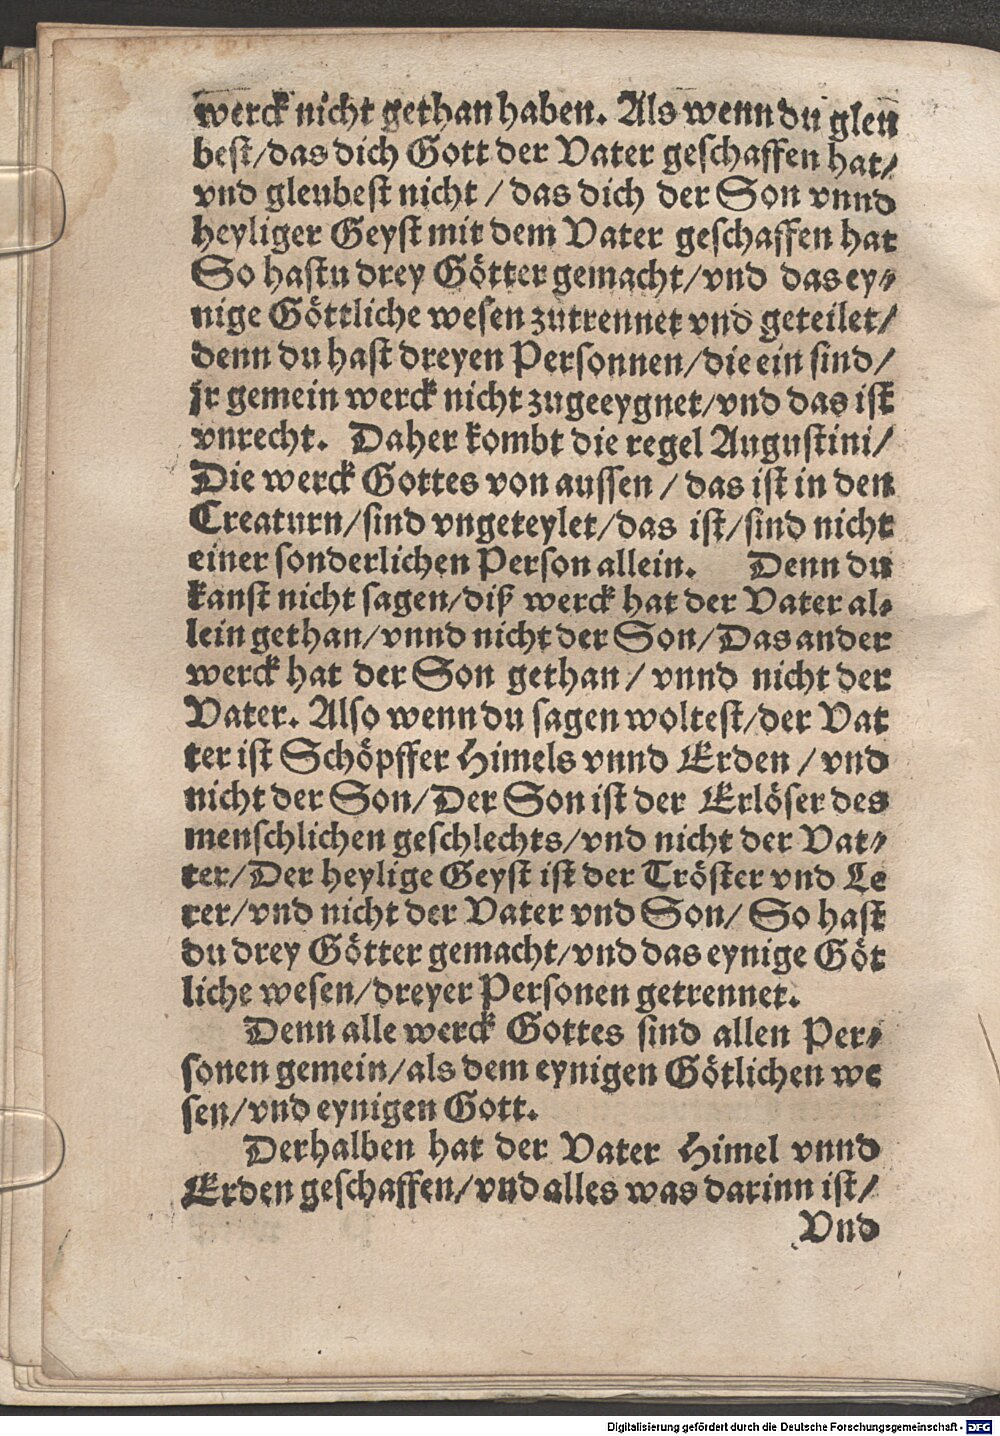 werck nicht gethan haben. Als wenn du gleu
best/das dich Gott der Vater geschaffen hat/
vnd gleubest nicht / das dich der Son vnnd
heyliger Geyst mit dem Vater geschaffen hat
So hastu drey Götter gemacht/vnd das ey-
nige Göttliche wesen zutrennet vnd geteilet/
denn du hast dreyen Personnen/die ein sind/
jr gemein werck nicht zugeeygnet/vnd das ist
vnrecht. Daher kombt die regel Augustini/
Die werck Gottes von aussen / das ist in den
Creaturn/sind vngeteylet/das ist/sind nicht
einer sonderlichen Person allein. Denn du
kanst nicht sagen/diß werck hat der Vater al-
lein gethan/vnnd nicht der Son/Das ander
werck hat der Son gethan/ vnnd nicht der
Vater. Also wenn du sagen woltest/der Vat
ter ist Schöpffer Himels vnnd Erden / vnd
nicht der Son/Der Son ist der Erlöser des
menschlichen geschlechts/vnd nicht der Vat-
ter/Der heylige Geyst ist der Tröster vnd Le
rer/vnd nicht der Vater vnd Son/ So hast
du drey Götter gemacht/vnd das eynige Göt
liche wesen/dreyer Personen getrennet.
Denn alle werck Gottes sind allen Per-
sonen gemein/als dem eynigen Götlichen we
sen/vnd eynigen Gott.
Derhalben hat der Vater Himel vnnd
Erden geschaffen/vnd alles was darinn ist/
Vnd
Digitalisierung gefördert durch die Deutsche Forschungsgemeinschaft - DFG